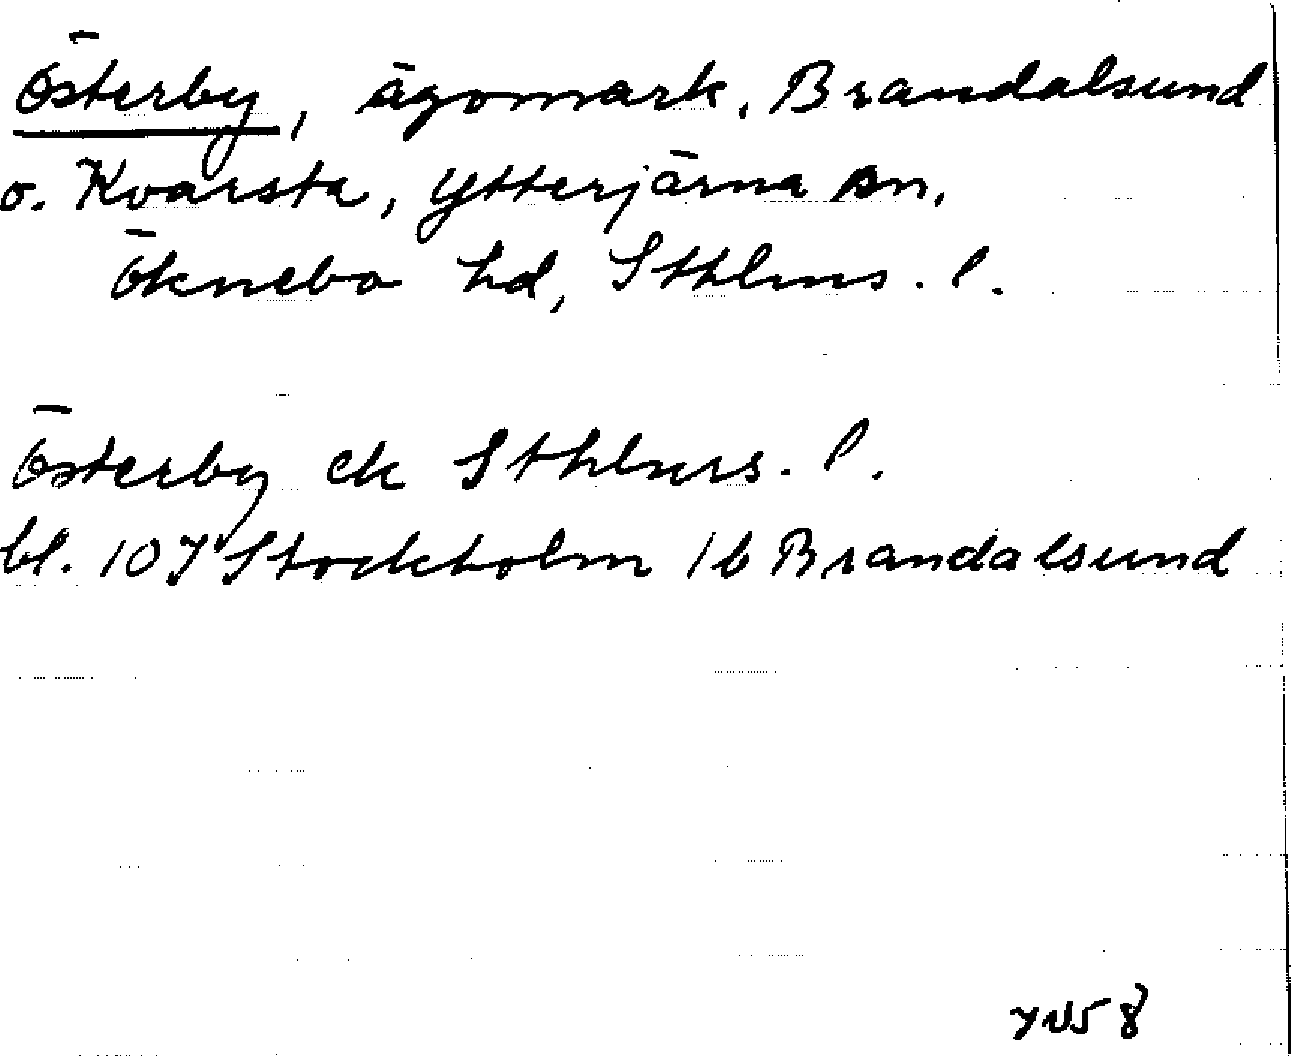 Österby, ägomark, Brandalsund
o. Kvarsta, Ytterjärna sn,
Öknebo hd, Sthlms. l.
Österby ek Sthlms. l.
bl. 10J Stockholm 1b Brandalsund